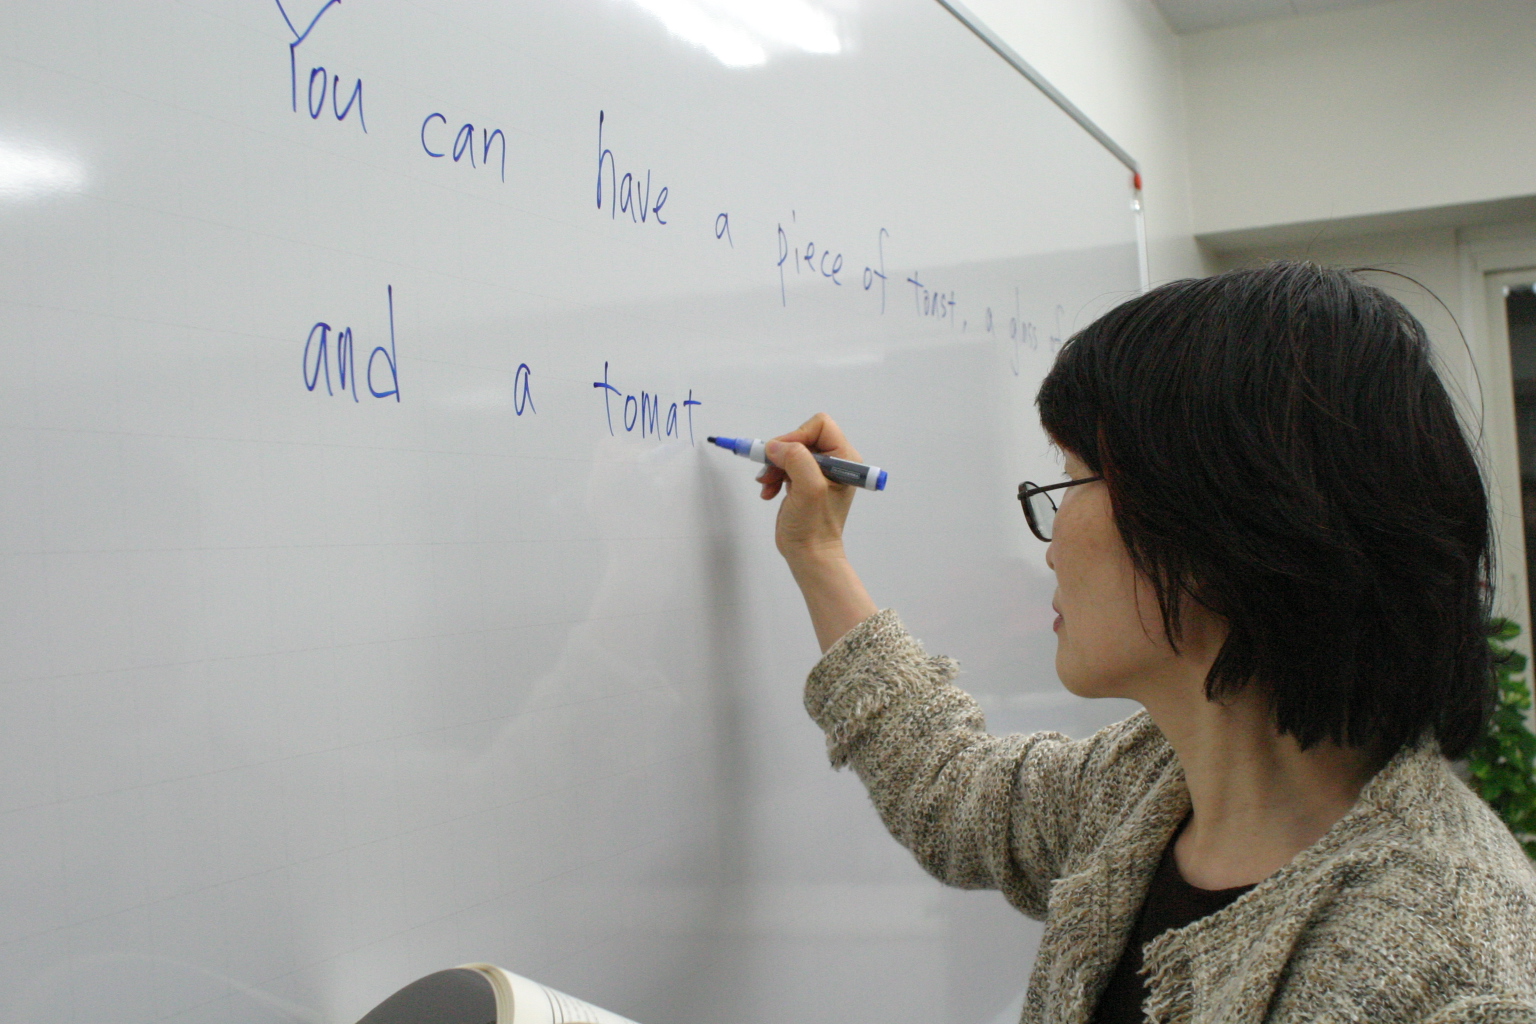 You can have a piece of toast, a glass of
and a tomat